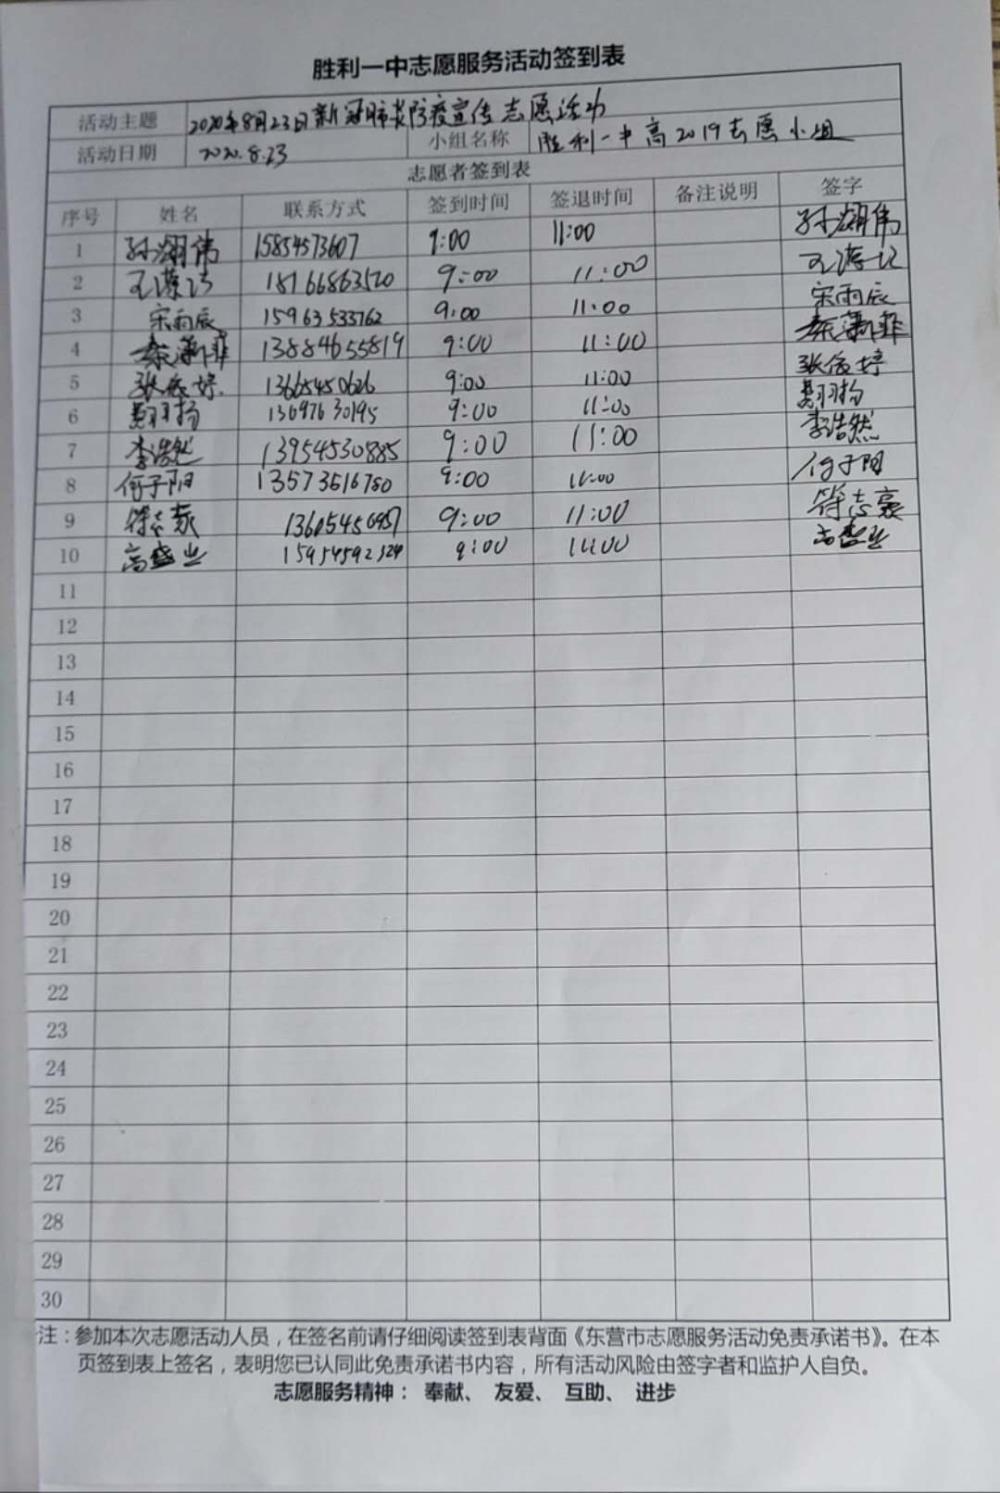 胜利一中志愿服务活动签到表
活动主题 2020年8月23日新冠肺炎防疫宣传志愿活动
活动日期 2020.8.23 小组名称 胜利一中高2019志愿小组
志愿者签到表
序号 姓名 联系方式 签到时间 签退时间 备注说明 签字
1 孙翊伟 15854573607 9:00 11:00 孙翊伟
2 18766863520 9:00 11:00
3 宋雨辰 15963533762 9:00 11:00 宋雨辰
4 秦潇菲 13884655819 9:00 11:00 秦潇菲
5 张俊婷 13665450626 9:00 11:00 张俊婷
6 13697630195 9:00 11:00
7 李浩然 13954530885 9:00 11:00 李浩然
8 何子阳 13573516780 9:00 11:00 何子阳
9 徐志豪 9:00 11:00 徐志豪
10 高盛业 9:00 11:00 高盛业
11
12
13
14
15
16
17
18
19
20
21
22
23
24
25
26
27
28
29
30
注：参加本次志愿活动人员，在签名前请仔细阅读签到表背面《东营市志愿服务活动免责承诺书》。在本
页签到表上签名，表明您已认同此免责承诺书内容，所有活动风险由签字者和监护人自负。
志愿服务精神： 奉献、 友爱、 互助、 进步